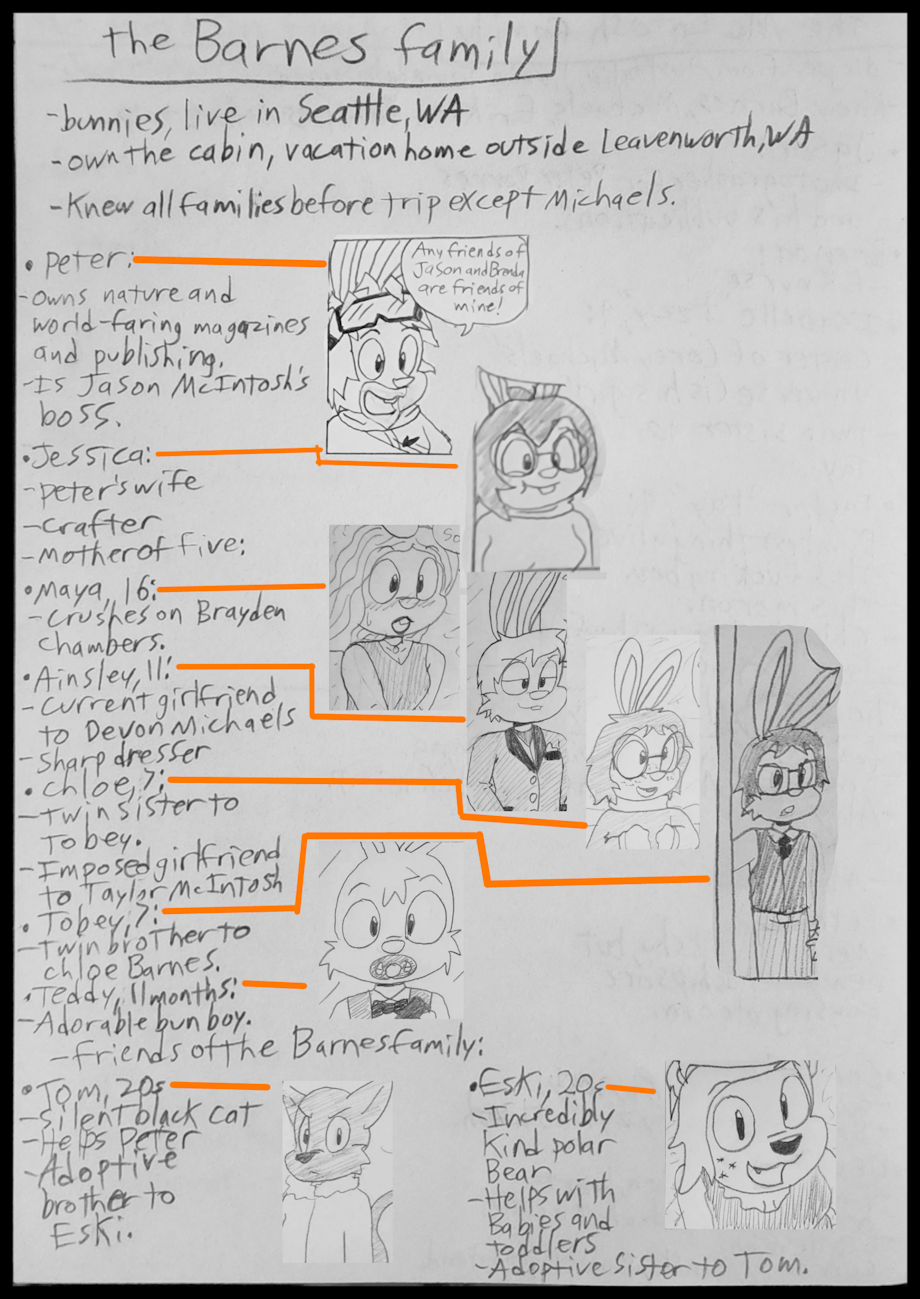 the Barnes family
-bunnies, live in Seattle, WA
-own the cabin, vacation home outside Leavenworth, WA
-Knew all families before trip except Michaels.
• Peter:
-owns nature and
world-faring magazines
and publishing.
-Is Jason McIntosh's
boss.
Any friends of
Jason and Brenda
are friends of
mine!
•Jessica:
-Peter's wife
-Crafter
-Mother of five:
•Maya, 16:
-Crushes on Brayden
Chambers.
•Ainsley, 11:
-Current girlfriend
to Devon Michaels
-Sharp dresser
• Chloe, 7:
-Twin sister to
Tobey.
-Imposed girlfriend
to Taylor McIntosh
• Tobey, 7:
-Twin brother to
Chloe Barnes.
•Teddy, 11 months:
-Adorable bun boy.
-Friends of the Barnes family:
•Tom, 20s
-Silent black cat
-Helps Peter
-Adoptive
brother to
Eski.
•Eski, 20s
-Incredibly
Kind polar
Bear
-Helps with
Babies and
toddlers
-Adoptive sister to Tom.